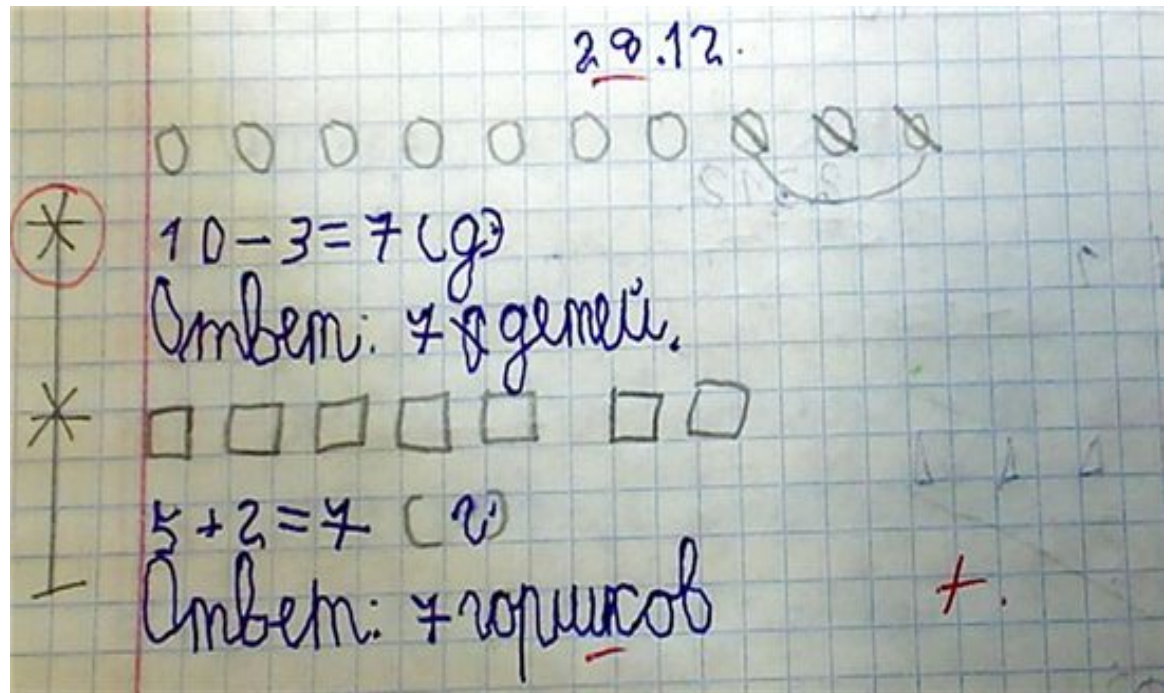 28.12.
10-3=7 (д)
Ответ: 7 детей.
5+2=7 (г)
Ответ: 7 горшков
+.